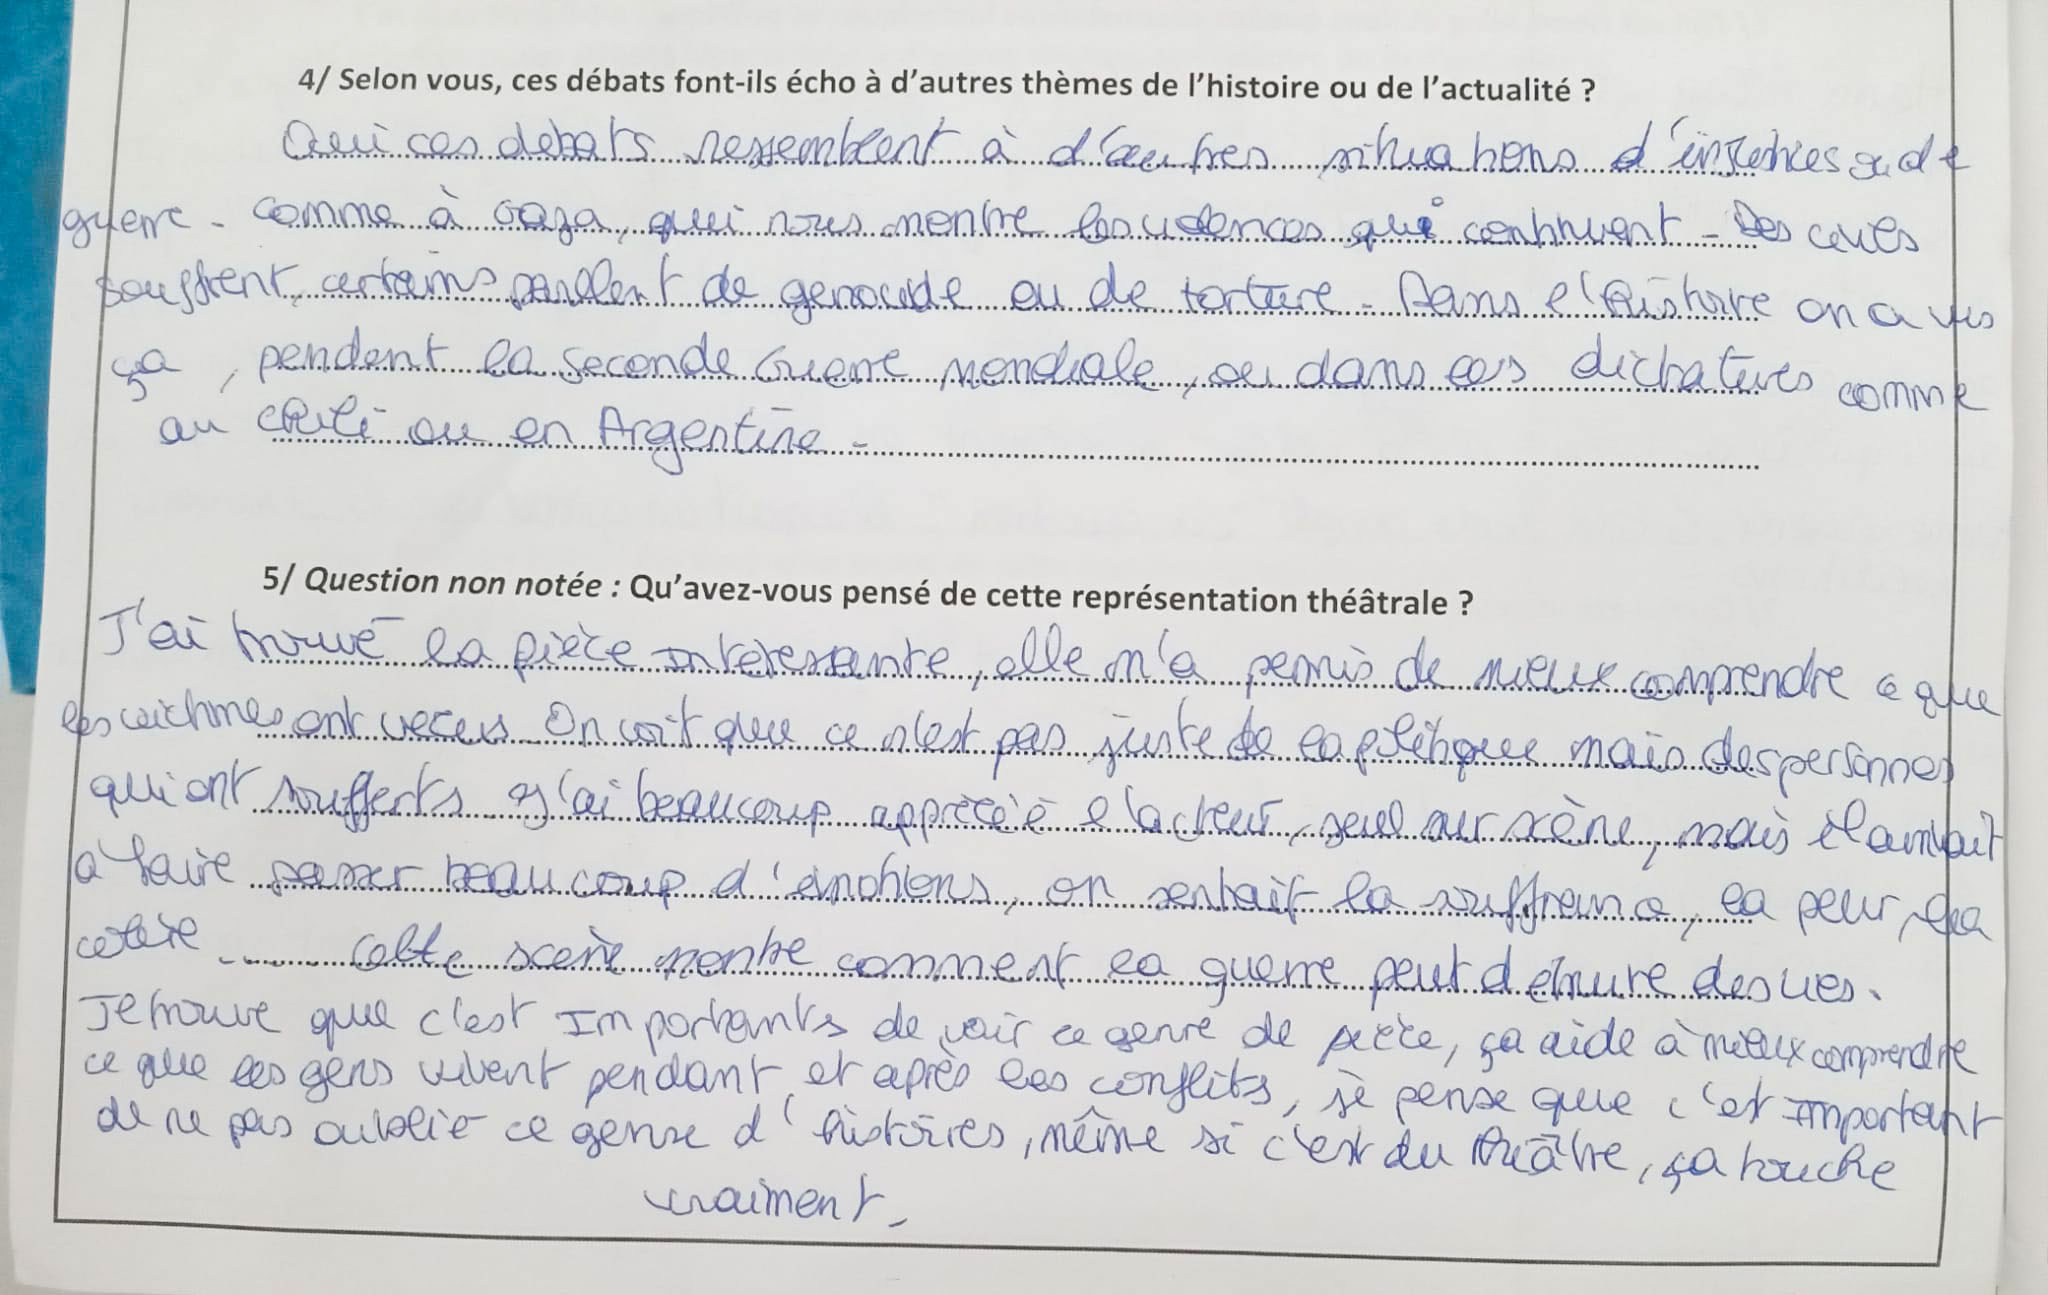 4/ Selon vous, ces débats font-ils écho à d'autres thèmes de l'histoire ou de l'actualité ?
Oui ces debats ressemblent à d'autres situations d'injustices ou de
guerre - comme à Gaza, qui nous montre les violences qui continuent - Des civils
souffrent, certains parlent de genocide ou de torture - Dans l'histoire on a vu
ça, pendent la seconde Guerre mondiale, ou dans les dictatures comme
au Chili ou en Argentine -
5/ Question non notée : Qu'avez-vous pensé de cette représentation théâtrale ?
J'ai trouvé la pièce intéressante, elle m'a permis de mieux comprendre ce que
les victimes ont vecus On voit que ce n'est pas juste de la politique mais des personnes
qui ont soufferts j'ai beaucoup apprécié l'acteur, seul sur scène, mais il arrivait
à faire passer beaucoup d'émotions, on sentait la souffrance, la peur, la
colère ...... Cette scène montre comment la guerre peut détruire des vies.
Je trouve que c'est importants de voir ce genre de pièce, ça aide à mieux comprendre
ce que les gens vivent pendant et après les conflits, je pense que c'est important
de ne pas oublier ce genre d'histoires, même si c'est du théâtre, ça touche
vraiment -